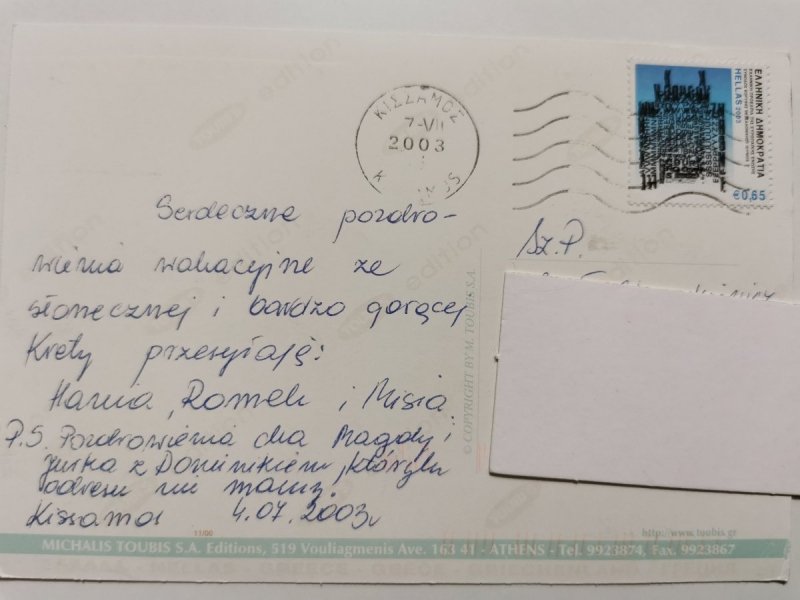 ΚΙΣΣΑΜΟΣ
7-VII
2003
ΕΛΛΗΝΙΚΗ ΔΗΜΟΚΡΑΤΙΑ
HELLAS 2003
€0,65
Serdeczne pozdro-
wienia wakacyjne ze
słonecznej i bardzo gorącej
Krety przesyłają:
Hania, Romek i Misia.
P.S. Pozdrowienia dla Magdy i
Jurka z Dominikiem, których
adresu nie mamy.
Kissamos 4.07.2003r
Sz. P.
© COPYRIGHT BY M. TOUBIS S.A.
11/00
http://www.toubis.gr
MICHALIS TOUBIS S.A. Editions, 519 Vouliagmenis Ave. 163 41 - ATHENS - Tel. 9923874, Fax. 9923867